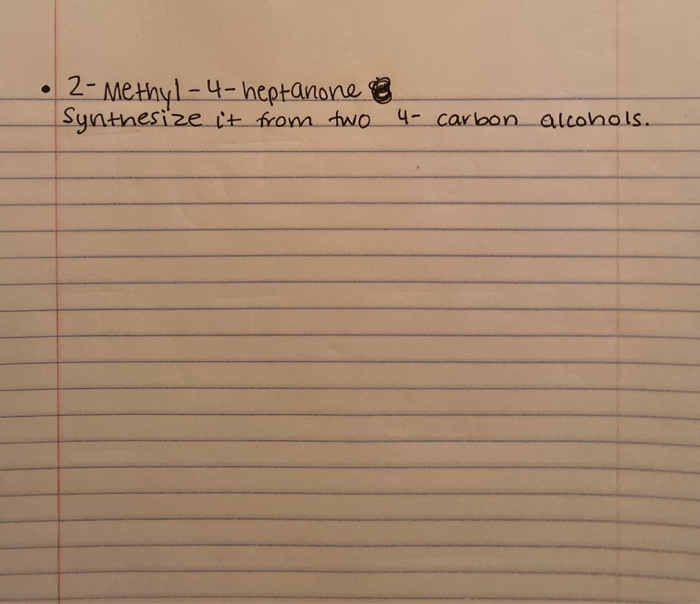 • 2-Methyl-4-heptanone
Synthesize it from two 4-carbon alcohols.